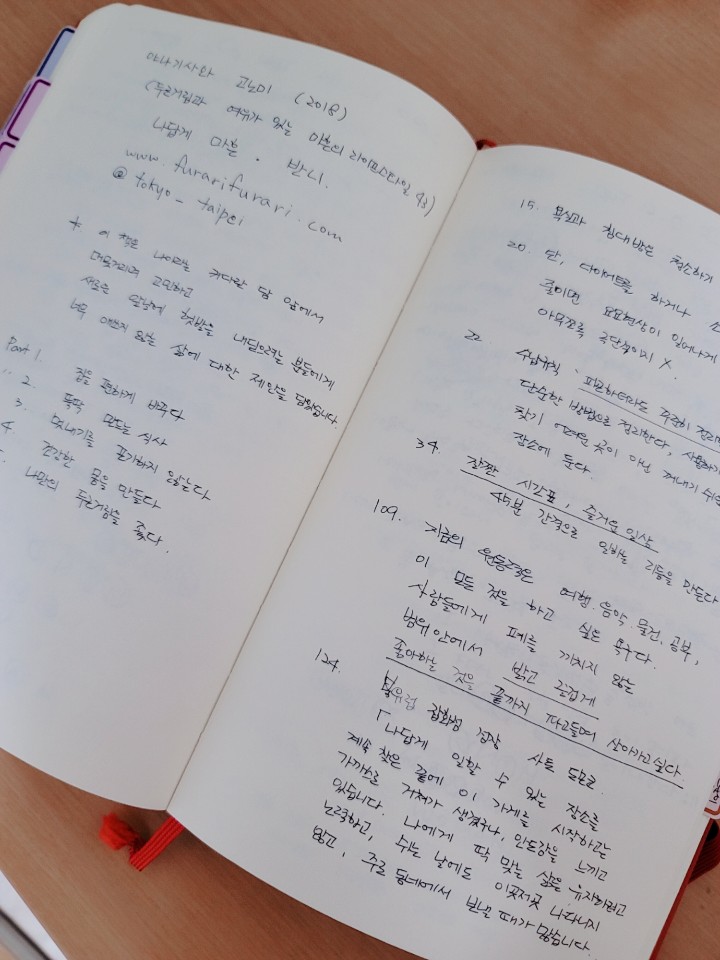 야나기사와 고노미 (2018)
(두근거림과 여유가 있는 마흔의 라이프스타일 43)
나답게 마흔. 반니.
www.furarifurari.com
@ tokyo_taipei
* 이 책은 나이라는 커다란 담 앞에서
머뭇거리며 고민하고
새로운 만남에 첫발을 내딛으려는 분들에게
너무 애쓰지 않는 삶에 대한 제안을 담았습니다.
Part 1. 집을 편하게 바꾸다
〃 2. 뚝딱 만드는 식사
3. 멋내기를 포기하지 않는다
4. 건강한 몸을 만들다
나만의 두근거림을 좇다.
15. 욕실과 침대방은 청소하기
20. 단, 다이어트를 하거나
줄이면 요요현상이 일어나게
아무쪼록 극단적이지 X.
22. 수납규칙. 피곤하더라도 꾸준히 정리
단순한 방법으로 정리한다, 사용하기
찾기 어려운 곳이 아닌 꺼내기 쉬운
장소에 둔다.
34. 알찬 시간표, 즐거운 일상
45분 간격으로 일하는 리듬을 만든다
109. 지금의 원동력은 여행. 음악. 물건. 공부,
이 모든 것을 하고 싶은 욕구다.
사람들에게 폐를 끼치지 않는
범위 안에서 밝고 즐겁게
좋아하는 것을 끝까지 파고들며 살아가고 싶다.
124. 북유럽 잡화점 점장 사토 도모코
「나답게 일할 수 있는 장소를
계속 찾은 끝에 이 가게를 시작하고는
가까스로 거처가 생겼구나, 안도감을 느끼고
있습니다. 나에게 딱 맞는 삶을 유지하려고
노력하고, 쉬는 날에도 이곳저곳 나다니지
않고, 주로 동네에서 보낼 때가 많습니다.